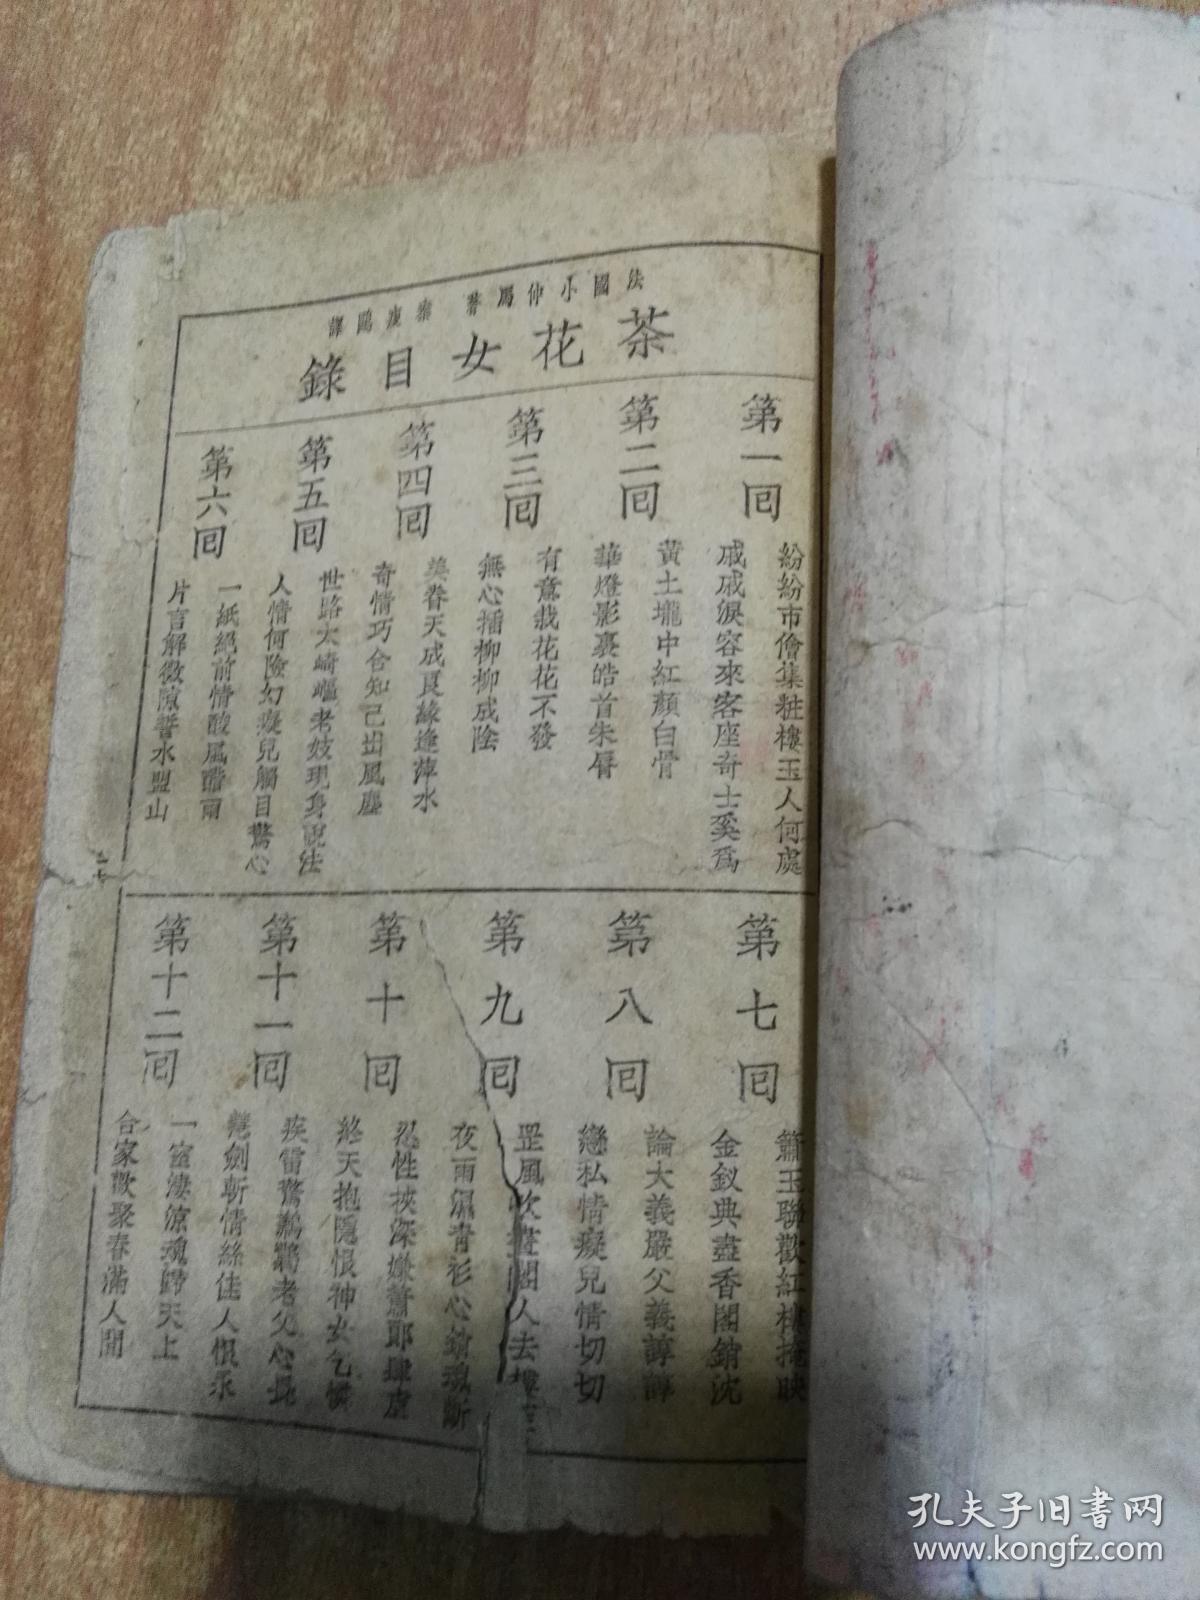 法國小仲馬著 秦瘦鷗譯
茶花女目錄
第一回
紛紛市儈集粧樓玉人何處
戚戚淚容來客座奇士奚爲
第二回
黃土壠中紅顏白骨
華燈影裏皓首朱脣
第三回
有意栽花花不發
無心插柳柳成陰
第四回
美眷天成良緣逢萍水
奇情巧合知己出風塵
第五回
世路太崎嶇老妓現身說法
人情何險幻癡兒觸目驚心
第六回
一紙絕前情酸風醋雨
片言解微隙誓水盟山
第七回
簫玉聯歡紅樓掩映
金釵典盡香閣銷沈
第八回
論大義嚴父義諄諄
戀私情癡兒情切切
第九回
罡風吹畫閣人去樓空
夜雨濕青衫心銷魂斷
第十回
忍性挾深嫌蕭郎肆虐
終天抱隱恨神女乞憐
第十一回
疾雷驚鶼鶼老父心長
慧劍斬情絲佳人恨永
第十二回
一室淒涼魂歸天上
合家歡聚春滿人間
孔夫子旧书网
www.kongfz.com